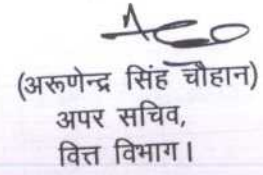 (अरूणेन्द्र सिंह चौहान)
अपर सचिव,
वित्त विभाग।